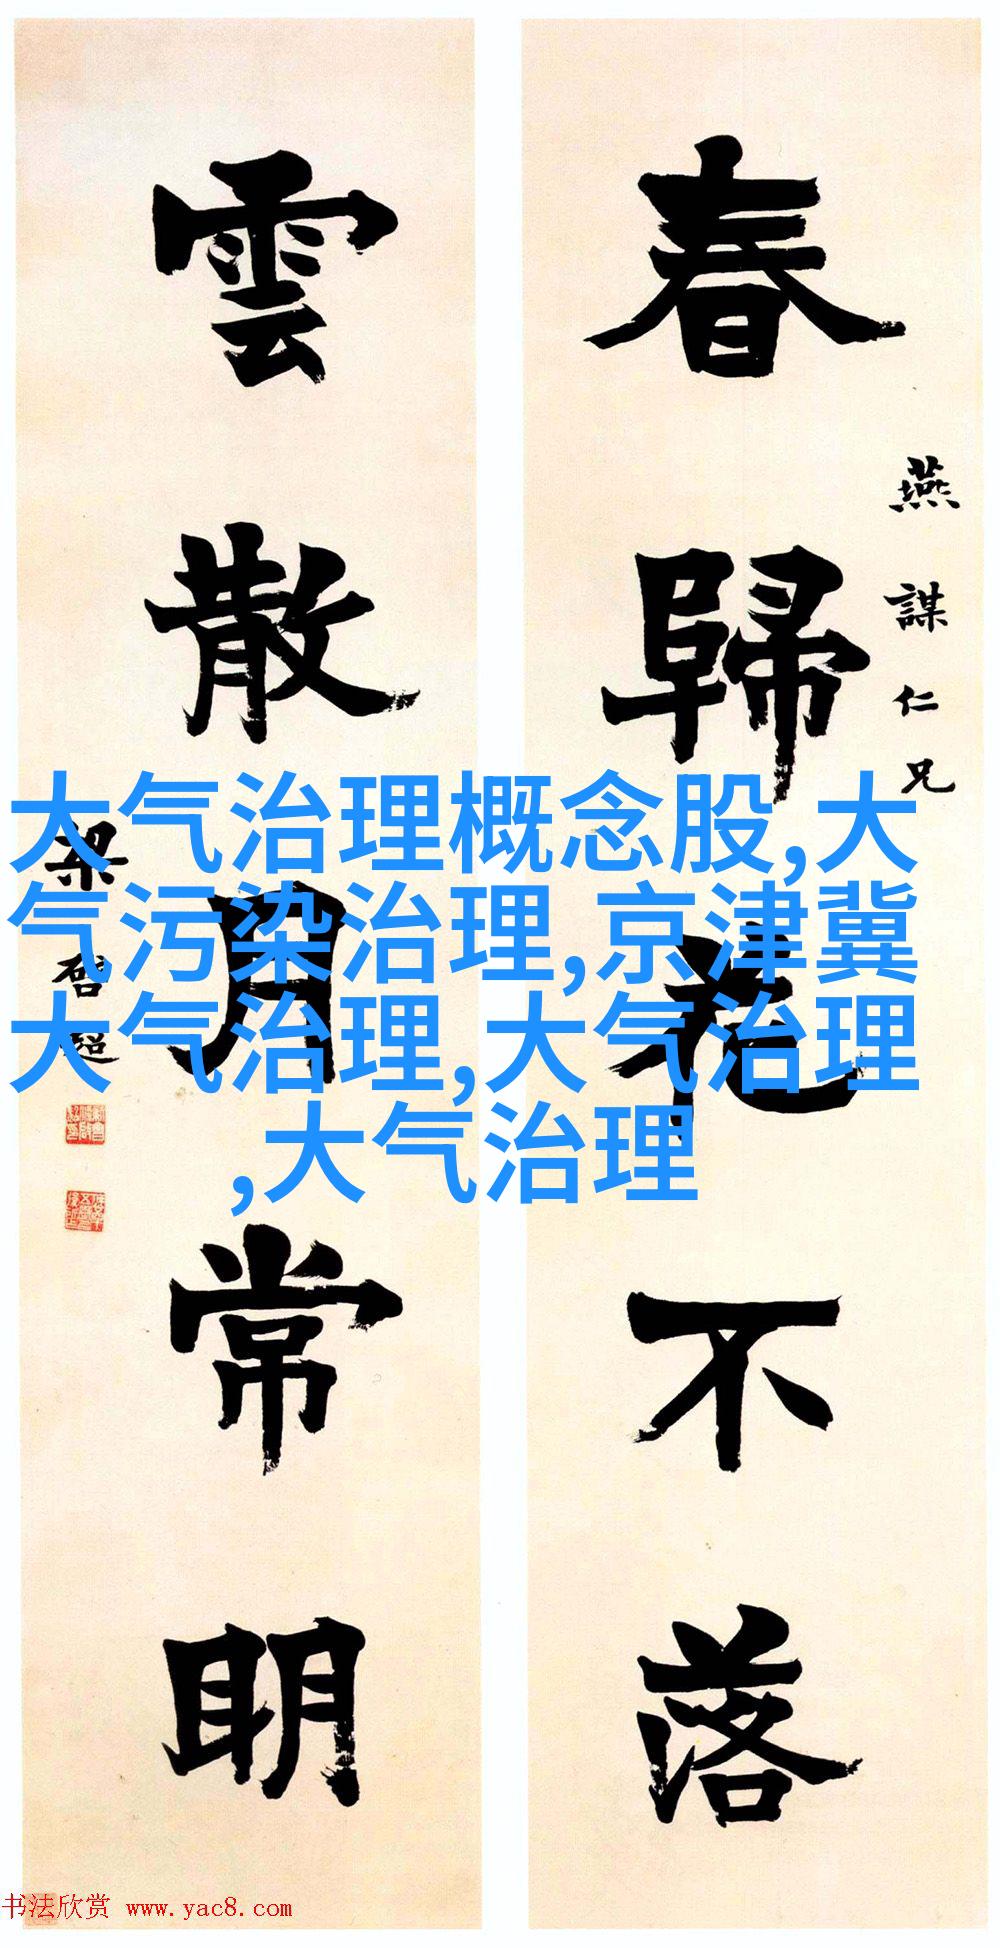 春歸花不落
燕謀仁兄
雲散月常明
梁啓超
大气治理概念股,大
气污染治理,京津冀
大气治理,大气治理
,大气治理
书法欣赏 www.yac8.com